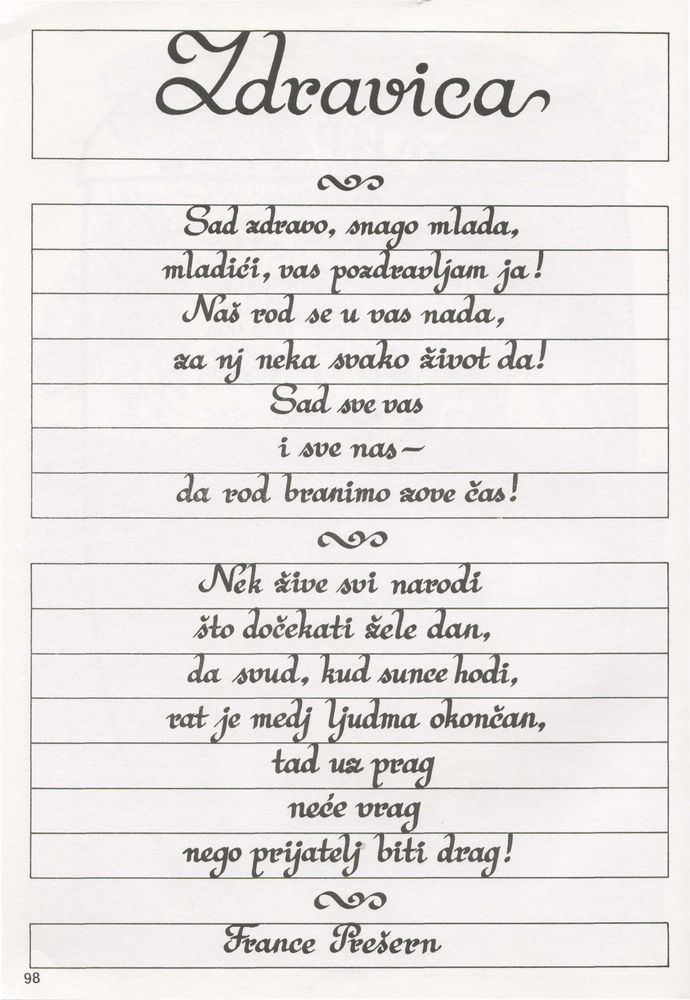 Zdravica
Sad zdravo, snago mlada,
mladići, vas pozdravljam ja!
Naš rod se u vas nada,
za nj neka svako život da!
Sad sve vas
i sve nas—
da rod branimo zove čas!
Nek žive svi narodi
što dočekati žele dan,
da svud, kud sunce hodi,
rat je medj ljudma okončan,
tad uz prag
neće vrag
nego prijatelj biti drag!
France Prešern
98